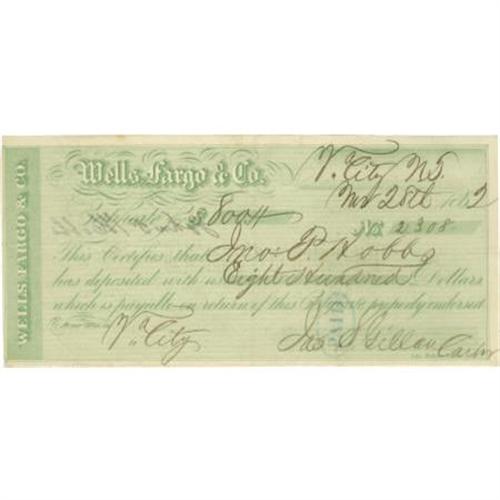 WELLS FARGO & CO.
Wells, Fargo & Co. Va. City N.T.
28th 186 2
Deposit $ 800 No. 2308
This Certifies that Jno. P. Hobbs
has deposited with us Eight Hundred Dollars
which is payable on return of this Certificate properly endorsed
Va. City
PAID
Jas. Gillan Cashr